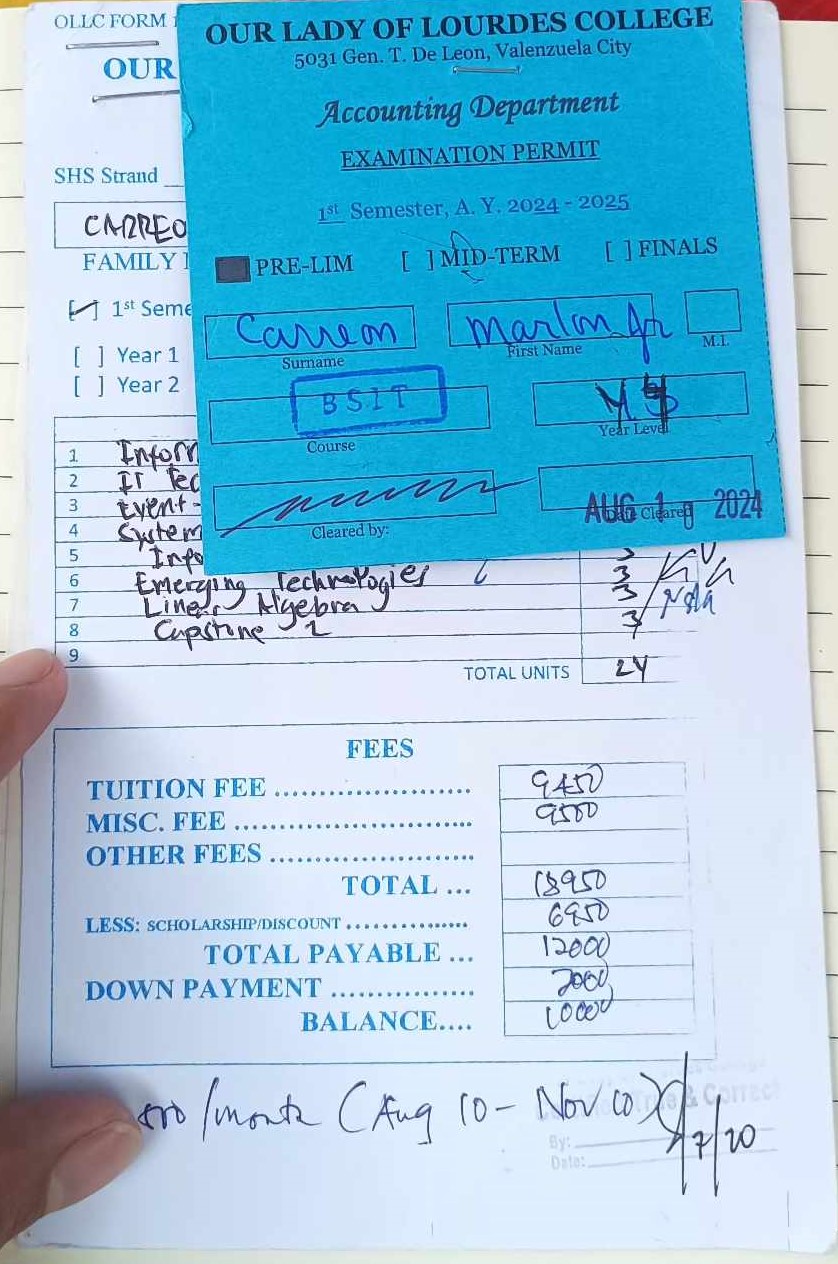 OLLC FORM 1
OUR
SHS Strand
CARREO
FAMILY
[✓] 1st Seme
[ ] Year 1
[ ] Year 2
OUR LADY OF LOURDES COLLEGE
5031 Gen. T. De Leon, Valenzuela City
Accounting Department
EXAMINATION PERMIT
1st Semester, A. Y. 2024 - 2025
PRE-LIM [ ] MID-TERM [ ] FINALS
Carreon Marlon Jr
Surname First Name M.I.
BSIT
Course Year Level
AUG 2024
Cleared by: Cleared
1 Inform
2 IT Tec
3 Event-
4 System
5 Info 3
6 Emerging Technologies 3
7 Linear Algebra 3
8 Capstone 2 3
9
TOTAL UNITS 24
FEES
TUITION FEE 9450
MISC. FEE 9500
OTHER FEES
TOTAL ... 18950
LESS: SCHOLARSHIP/DISCOUNT 6950
TOTAL PAYABLE ... 12000
DOWN PAYMENT 2000
BALANCE.... 10000
/month (Aug 10 - Nov 10)
True & Correct
By:
Date:
7/20